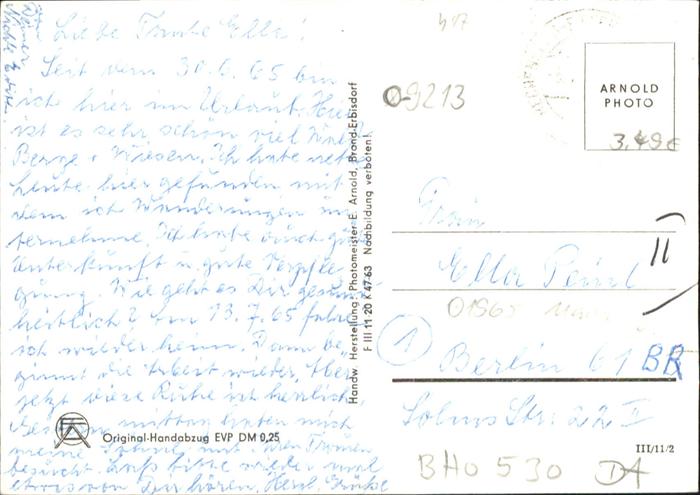 Liebe Tante Ella!
Seit dem 30.6.65 bin
ich hier im Urlaub. Hier
ist es sehr schön viel Wald
Berge + Wiesen. Ich habe nette
Leute hier gefunden mit
dem ich Wanderungen un
ternehme. Ich habe auch gute
Unterkunft u. gute Verpfle
gung. Wie geht es Dir gesund
heitlich? am 13.7.65 fahre
ich wieder heim. Dann be
ginnt die Arbeit wieder. Aber
jetzt diese Ruhe ist herrlich.
haben mich
meine Söhne mit den Frauen
besucht. Laß bitte wieder mal
etwas von Dir hören. Herzl. Grüße
Original-Handabzug EVP DM 0,25
Handw. Herstellung: Photomeister E. Arnold, Brand-Erbisdorf
F III 11 20 K 47 63 Nachbildung verboten!
417
09213
ARNOLD
PHOTO
3,49€
Frau
II
Ella
01965
1
Berlin 61 BR
Solms Str. 22 II
III/11/2
BHO 530 DA